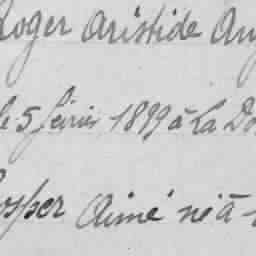 Roger Aristide Aug
le 5 février 1899 à La Do
osper Aimé né à